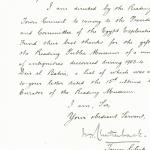 I am directed by the Reading
Town Council to convey to the President
and Committee of the Egypt Exploration
Fund their best thanks for the gift
to the Reading Public Museum of a
of antiquities discovered during 1903-4
Deir el Bahri, a list of which was
to your letter dated the 15th ultimo
Curator of the Reading Museum.
I am, Sir,
Your obedient Servant,
Town Clerk